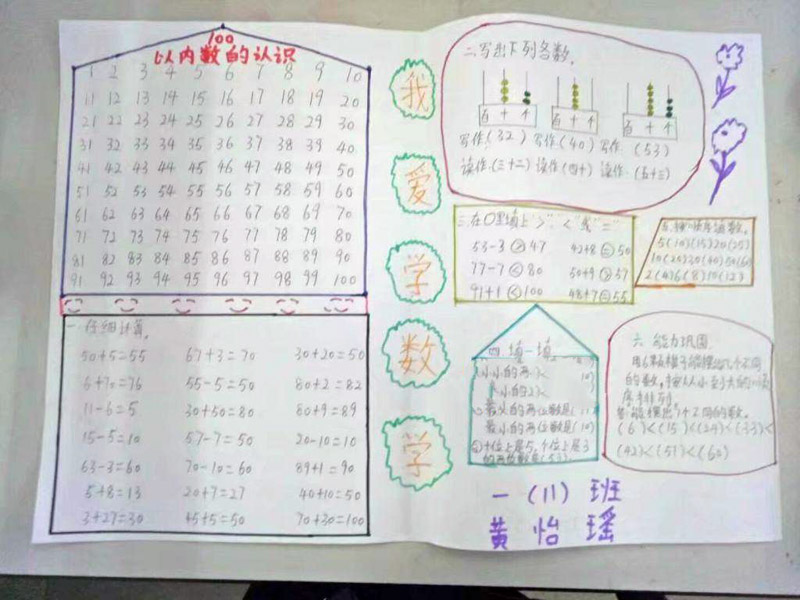 100
以内数的认识
1 2 3 4 5 6 7 8 9 10
11 12 13 14 15 16 17 18 19 20
21 22 23 24 25 26 27 28 29 30
31 32 33 34 35 36 37 38 39 40
41 42 43 44 45 46 47 48 49 50
51 52 53 54 55 56 57 58 59 60
61 62 63 64 65 66 67 68 69 70
71 72 73 74 75 76 77 78 79 80
81 82 83 84 85 86 87 88 89 90
91 92 93 94 95 96 97 98 99 100
一.仔细计算。
50+5=55 67+3=70 30+20=50
6+70=76 55-5=50 80+2=82
11-6=5 30+50=80 80+9=89
15-5=10 57-7=50 20-10=10
63-3=60 70-10=60 89+1=90
5+8=13 20+7=27 40+10=50
3+27=30 45+5=50 70+30=100
我
爱
学
数
学
二.写出下列各数。
百 十 个 百 十 个
写作:(32) 写作(40) 写作:(53)
读作:(三十二) 读作(四十) 读作:(五十三)
三.在〇里填上">"、"<"或"="
53-3>47 42+8=50
77-7<80 50+9>57
91+1<100 48+7=55
5(10)(15)20(25)
10(20)30(40)50(60)
2(4)6(8)10(12)
四.填一填
最小的两位数是(10)
②十位上是5,个位上是3
的两位数是(53)
六.能力巩固
(6)<(15)<(24)<(33)<
(42)<(51)<(60)
一(11)班
黄怡瑶